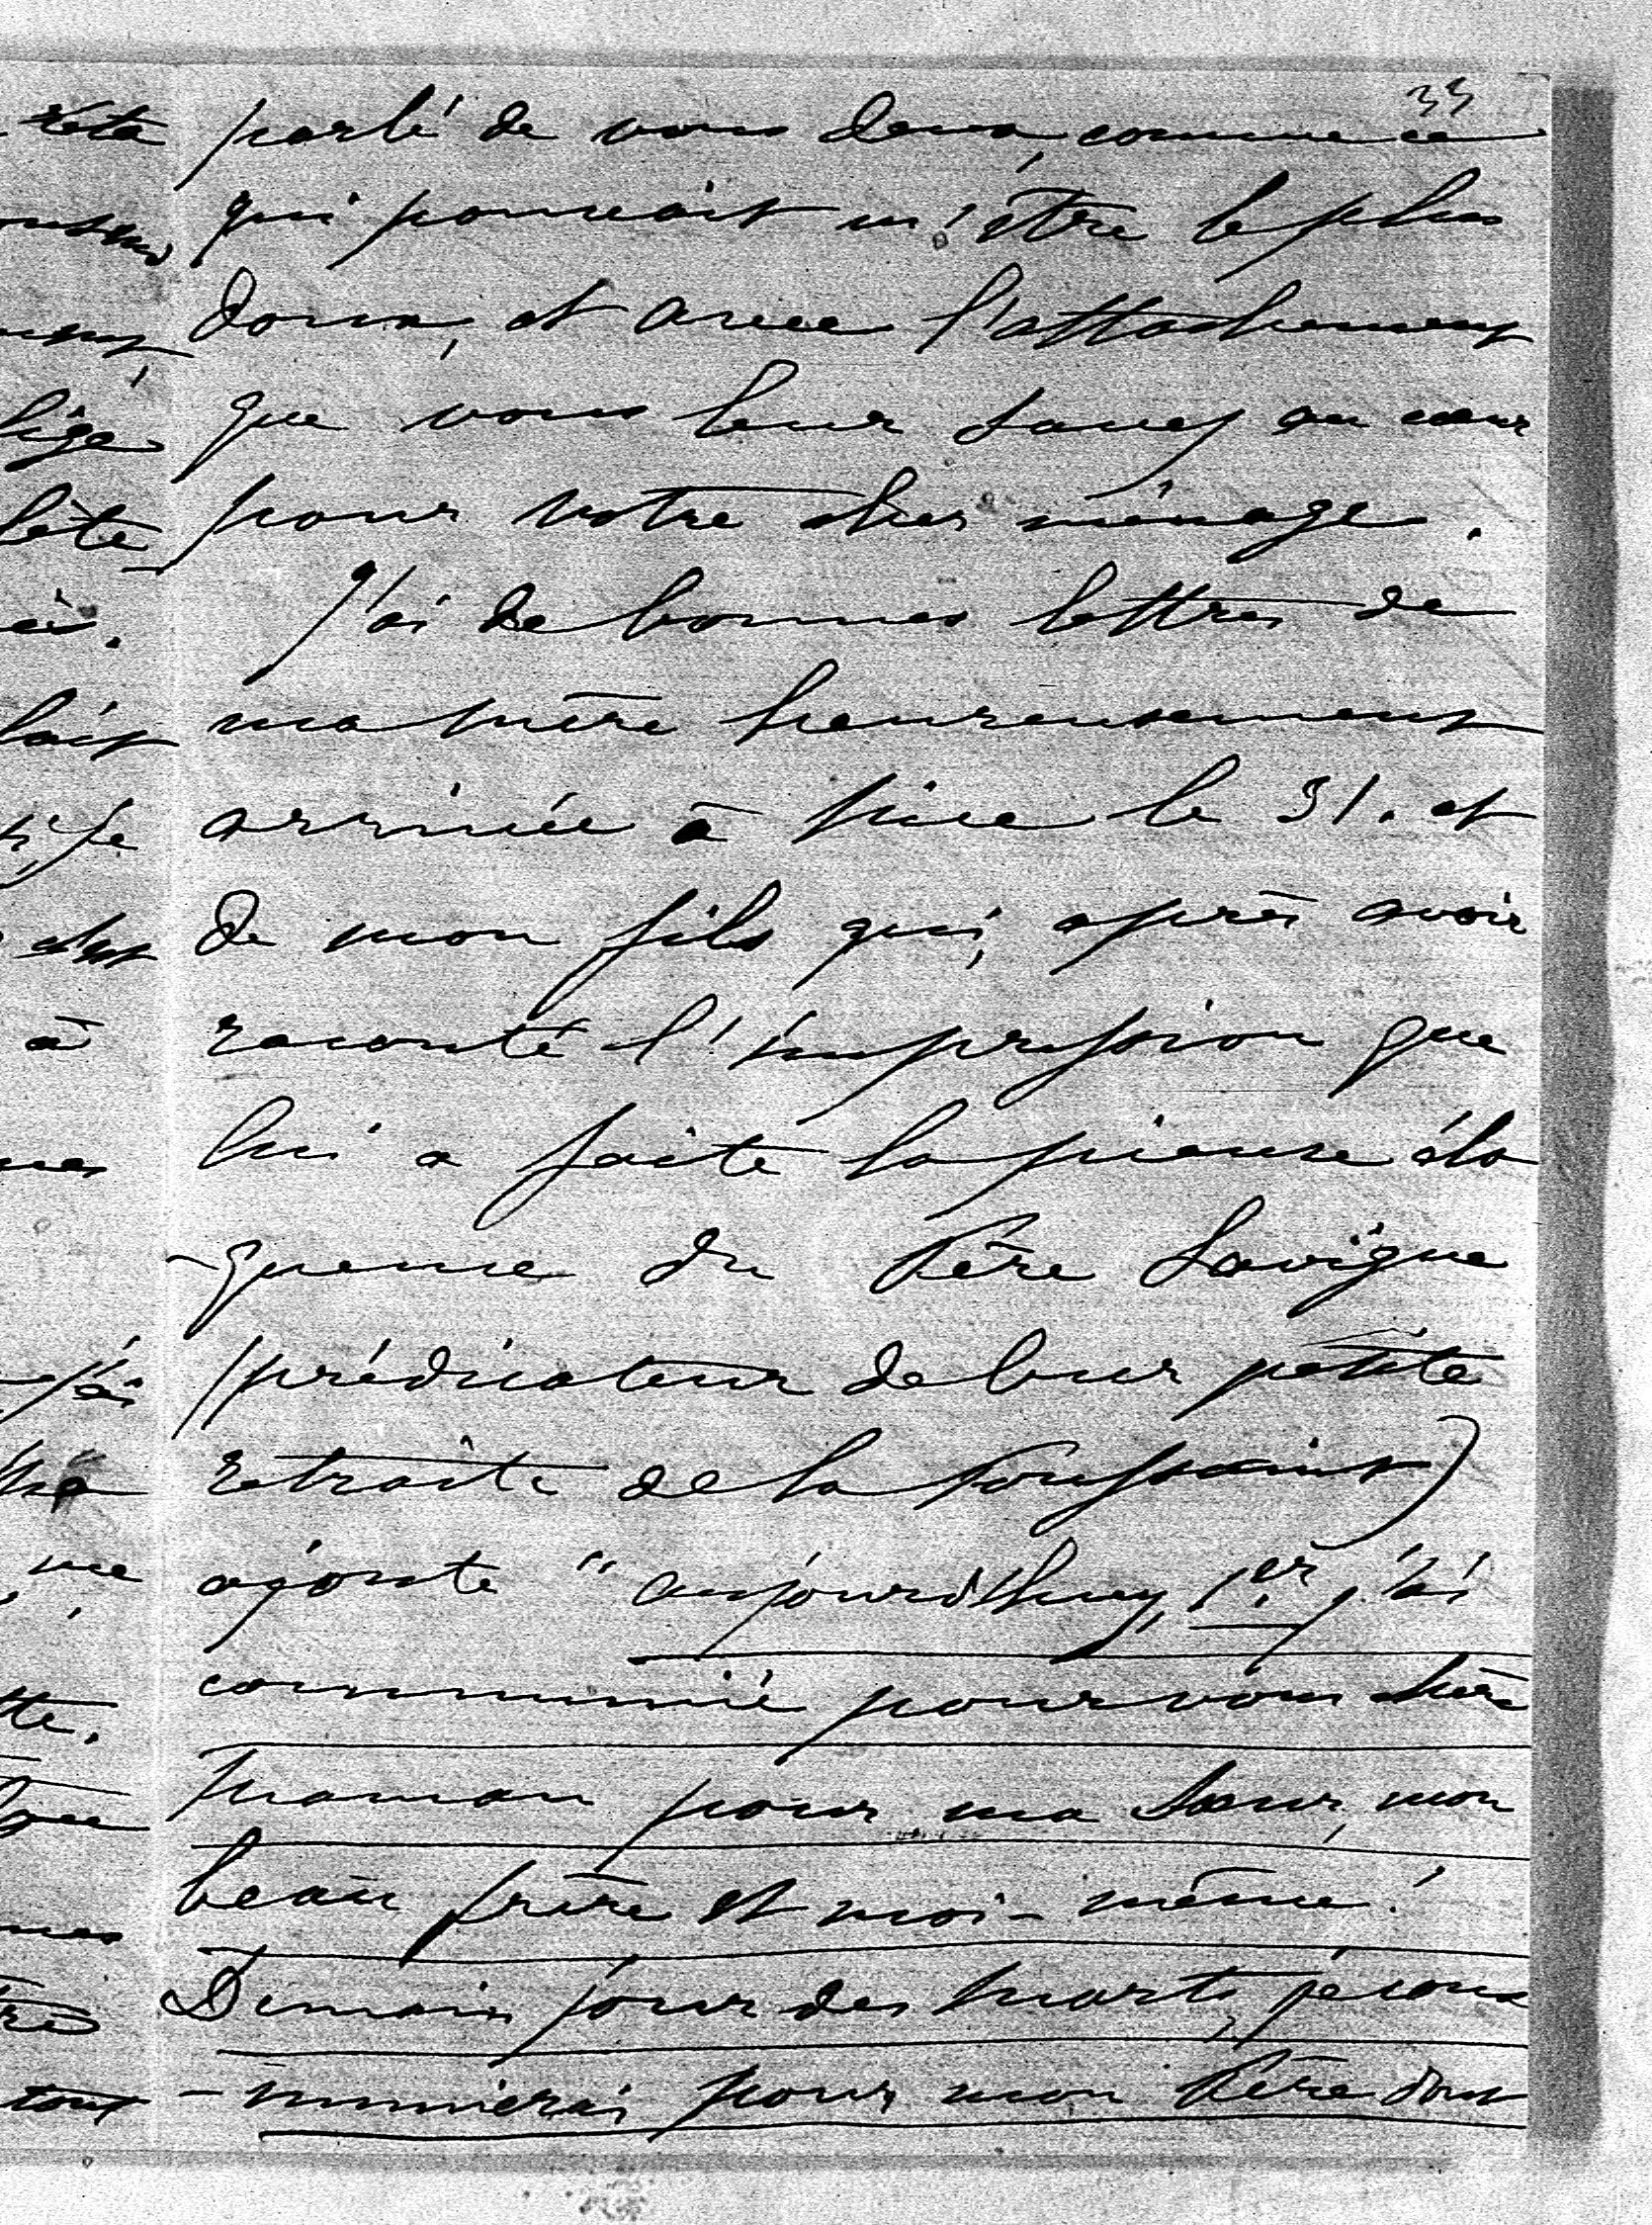 35
parlé de vous deux, comme ce
qui pouvait m'être le plus
doux, et avec l'attachement
que vous leur savez au cœur
pour votre cher ménage.
J'ai de bonnes lettres de
ma mère heureusement
arrivée à Nice le 31. et
de mon fils qui, après avoir
raconté l'impression que
lui a faite la pieuse élo
-quence du Père Lavigne
(prédicateur de leur petite
retraite de la Toussaint)
ajoute "aujourd'huy, 1er, j'ai
communié pour vous chère
Maman pour ma Sœur, mon
beau frère et moi-même!
Demain jour des Morts, je com
-munierai pour mon Père dont
à
tout